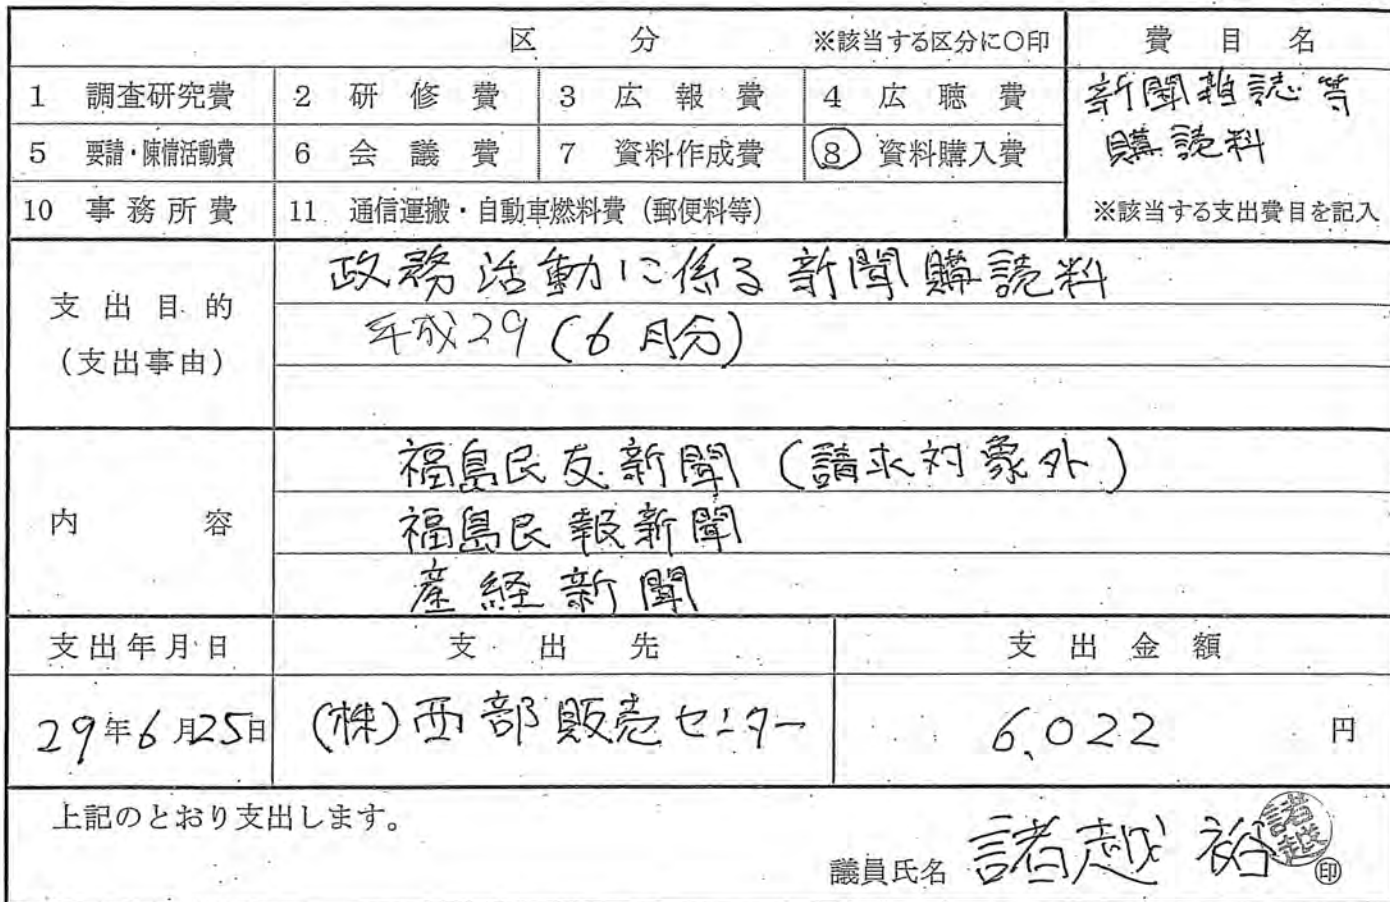 区分 ※該当する区分に○印 費目名
1 調査研究費 2 研修費 3 広報費 4 広聴費 新聞雑誌等
5 要請・陳情活動費 6 会議費 7 資料作成費 8 資料購入費 購読料
10 事務所費 11 通信運搬・自動車燃料費（郵便料等） ※該当する支出費目を記入
支出目的
（支出事由）
政務活動に係る新聞購読料
平成29（6月分）
内容
福島民友新聞（請求対象外）
福島民報新聞
産経新聞
支出年月日 支出先 支出金額
29年6月25日 (株)西部販売センター 6,022 円
上記のとおり支出します。
議員氏名 諸越裕 印
諸越